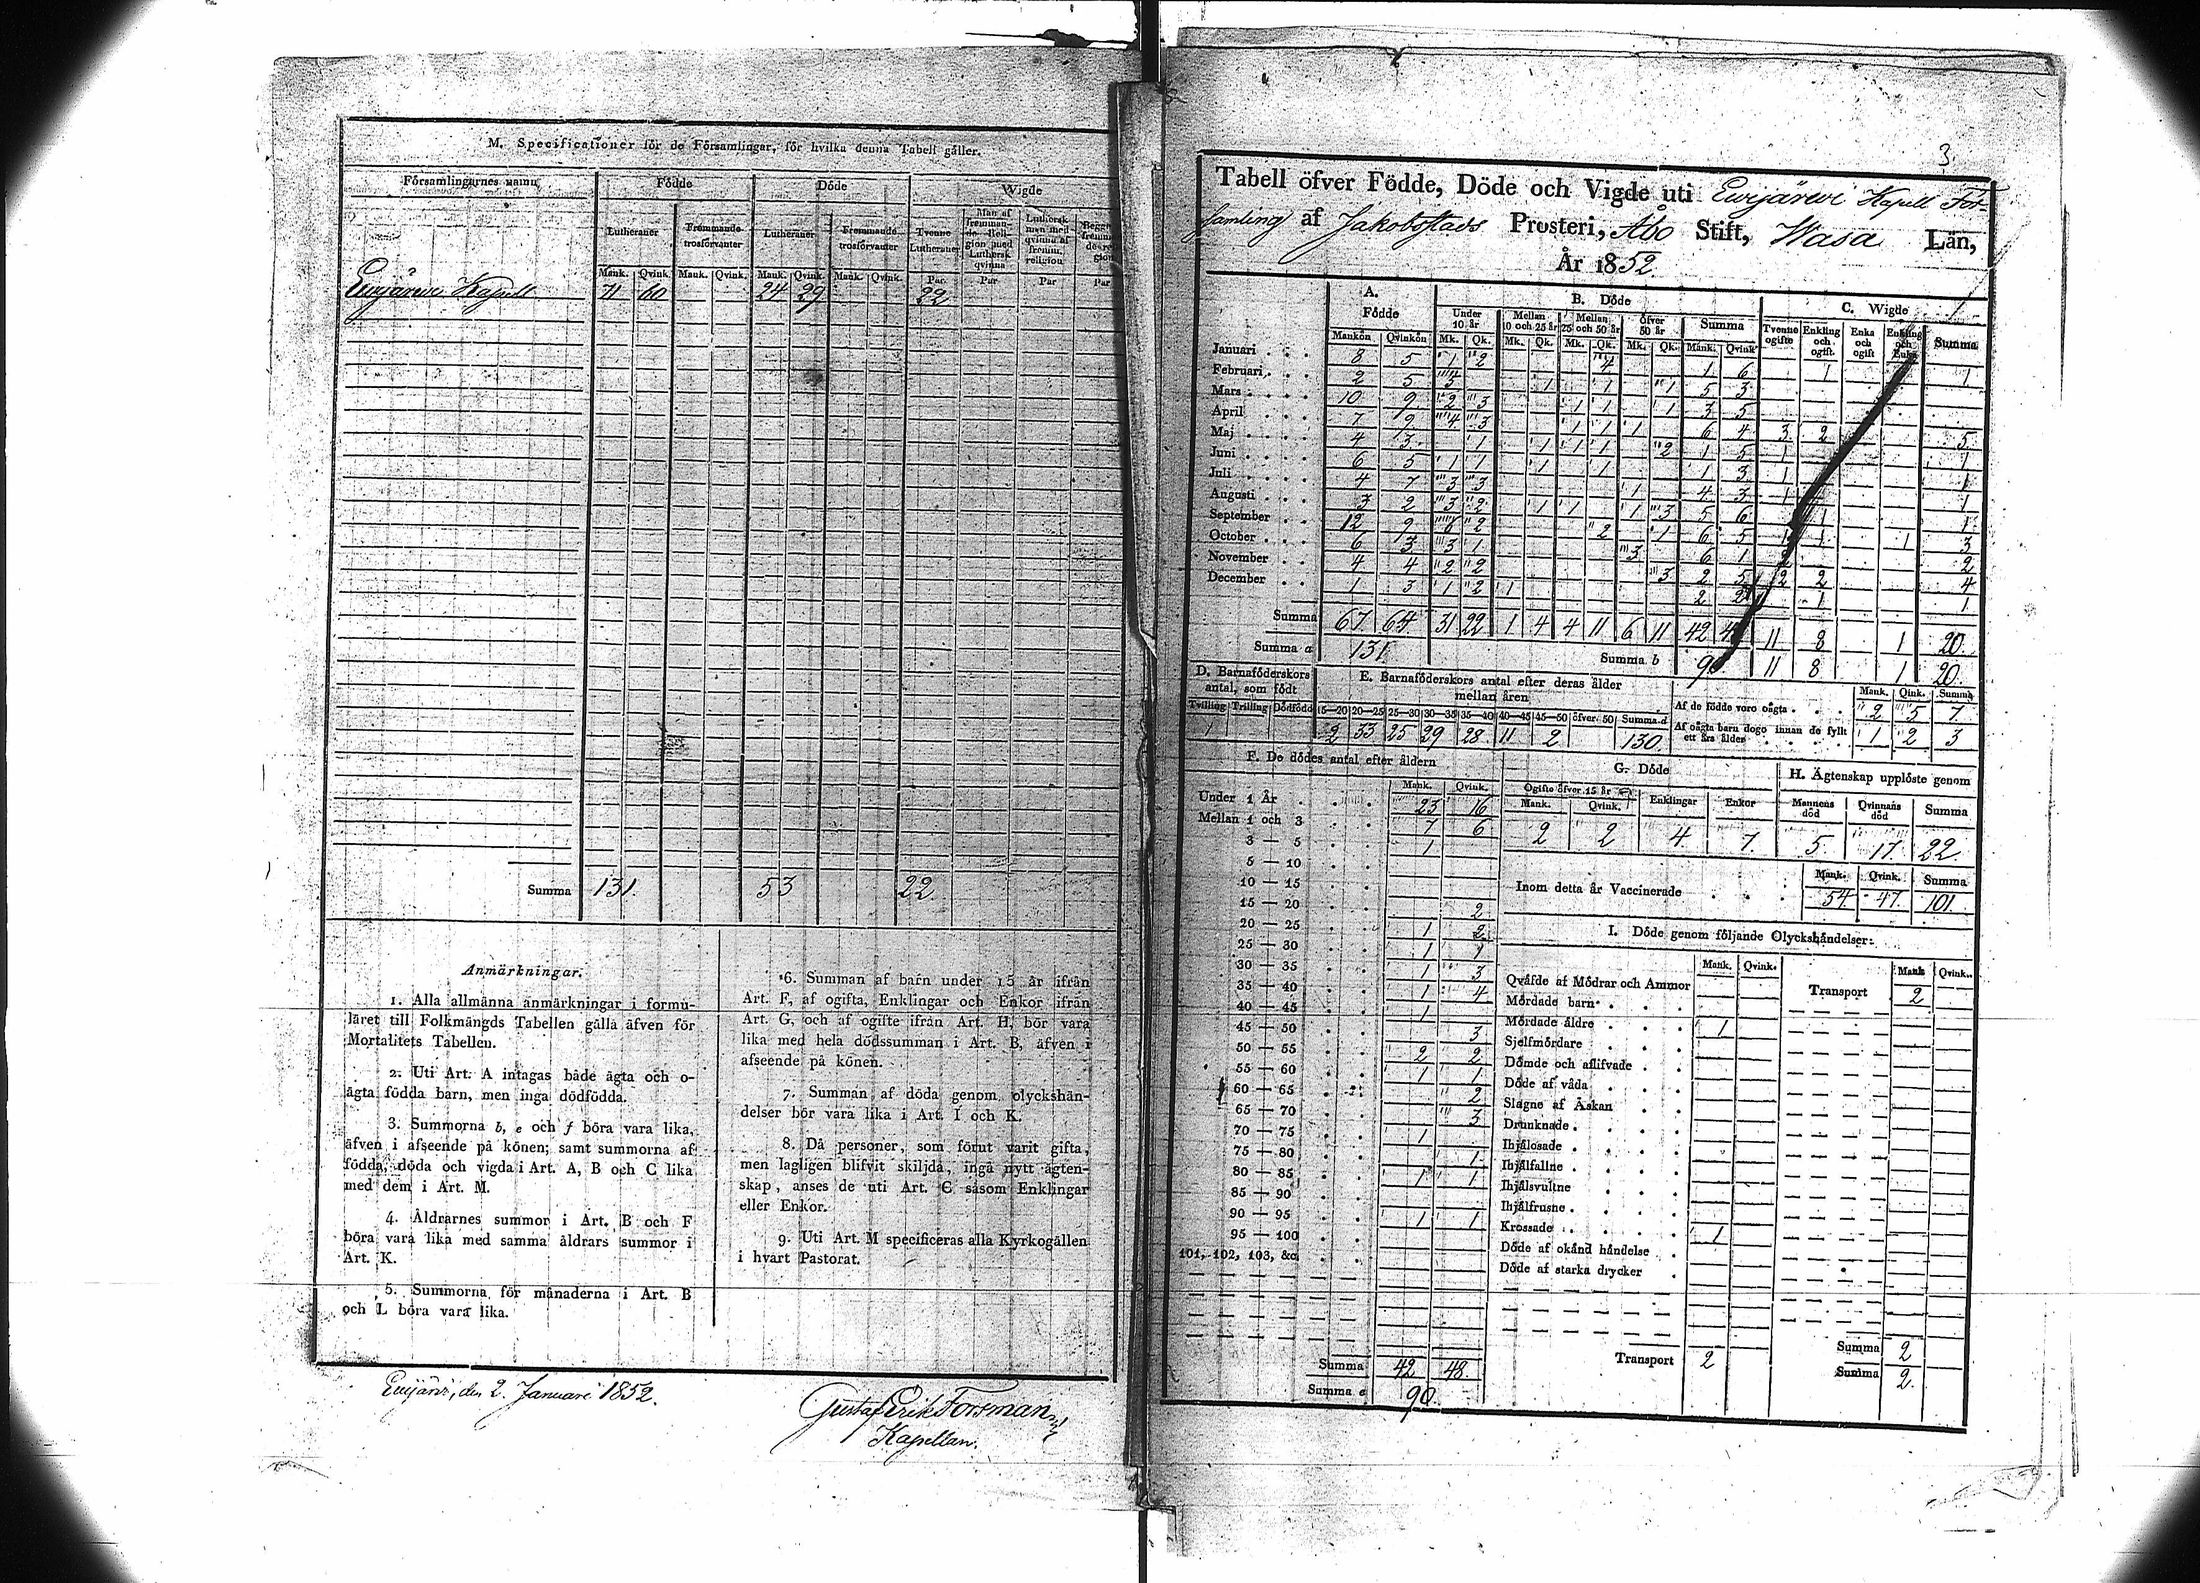 M. Specificationer för de Församlingar, för hvilka denna Tabell gäller.
Församlingarnes namn Födde Döde Wigde
Lutheraner Fremmande trosförvanter Lutheraner Fremmande trosförvanter Tvenne Lutheraner Man af fremmande Religion med Luthersk qvinna Luthersk man med qvinna af fremm. religion
Mank. Qvink. Mank. Qvink. Mank. Qvink. Mank. Qvink. Par Par Par Par
Ewijärwi Kapell 71 60 24 29 22
Summa 131. 53 22.
Anmärkningar.
1. Alla allmänna anmärkningar i formu-
läret till Folkmängds Tabellen gälla äfven för
Mortalitets Tabellen.
2. Uti Art. A intagas både ägta och o-
ägta födda barn, men inga dödfödda.
3. Summorna b, e och f böra vara lika,
äfven i afseende på könen; samt summorna af
födda, döda och vigda i Art. A, B och C lika
med dem i Art. M.
4. Åldrarnes summor i Art. B och F
böra vara lika med samma åldrars summor i
Art. K.
5. Summorna för månaderna i Art. B
och L böra vara lika.
6. Summan af barn under 15 år ifrån
Art. F, af ogifta, Enklingar och Enkor ifrån
Art. G, och af ogifte ifrån Art. H, bör vara
lika med hela dödssumman i Art. B, äfven i
afseende på könen.
7. Summan af döda genom olyckshän-
delser bör vara lika i Art. I och K.
8. Då personer, som förut varit gifta,
men lagligen blifvit skiljda, ingå nytt ägten-
skap, anses de uti Art. C såsom Enklingar
eller Enkor.
9. Uti Art. M specificeras alla Kyrkogällen
i hvart Pastorat.
Ewijärvi, den 2. Januari 1852.
Gustaf Erik Forsman
Kapellan.
3.
Tabell öfver Födde, Döde och Vigde uti Ewijärwi Kapell För-
samling af Jakobstads Prosteri, Åbo Stift, Wasa Län,
År 1852.
A. Födde B. Döde C. Wigde
Under 10 år Mellan 10 och 25 år Mellan 25 och 50 år Öfver 50 år Summa Tvenne ogifte Enkling och ogift. Enka och ogift Enkling och Enka Summa
Mankön Qvinkön Mk. Qk. Mk. Qk. Mk. Qk. Mk. Qk. Mank. Qvink
Januari 8 5 1 2 4 1 6 1 1
Februari 2 5 5 1 1 1 5 3
Mars 10 9 2 3 1 1 1 3 5
April 7 9 4 3 1 1 1 6 4 3 2 5
Maj 4 3 1 1 1 1 2 1 5 1 1
Juni 6 5 1 1 1 1 1 3 1 1
Juli 4 7 3 3 1 4 3 1 1
Augusti 3 2 3 2 1 1 1 3 5 6 1 1
September 12 9 6 2 2 1 6 5 1 1 1 3
October 6 3 3 1 3 6 1 2 2
November 4 4 2 2 3 2 5 2 2 4
December 1 3 1 2 1 2 2 1 1
Summa 67 64 31 22 1 4 4 11 6 11 42 11 8 1 20.
Summa a 131 Summa b 11 8 1 20.
D. Barnaföderskors antal, som födt
Tvilling Trilling Dödfödd
1
E. Barnaföderskors antal efter deras ålder mellan åren
15—20 20—25 25—30 30—35 35—40 40—45 45—50 öfver 50 Summa d
2 33 25 29 28 11 2 130.
Mank. Qink. Summa
Af de födde voro oägta 2 5 7
Af oägta barn dogo innan de fyllt ett års ålder 1 2 3
F. De dödes antal efter åldern
Mank. Qvink.
Under 1 År 23 16
Mellan 1 och 3 7 6
3 — 5 1
5 — 10
10 — 15
15 — 20 2
20 — 25 1 2
25 — 30 1 1
30 — 35 1 3
35 — 40 1 4
40 — 45 1
45 — 50 3
50 — 55 2 2
55 — 60 1 1
60 — 65 2
65 — 70 3
70 — 75 1
75 — 80 1
80 — 85 1 1
85 — 90
90 — 95 1 1
95 — 100
101, 102, 103, &c.
Summa 42 48
Summa e 90.
G. Döde
Ogifte öfver 15 år Enklingar Enkor
Mank. Qvink.
2 2 4 7
H. Ägtenskap upplöste genom
Mannens död Qvinnans död Summa
5 17 22
Mank. Qvink. Summa
Inom detta år Vaccinerade 54 47 101.
I. Döde genom följande Olyckshändelser:
Mank. Qvink. Mank Qvink.
Qväfde af Mödrar och Ammor Transport 2
Mördade barn
Mördade äldre 1
Sjelfmördare
Dömde och aflifvade
Döde af våda
Slagne af Åskan
Drunknade
Ihjälosade
Ihjälfallne
Ihjälsvultne
Ihjälfrusne
Krossade 1
Döde af okänd händelse
Döde af starka drycker
Transport 2 Summa 2
Summa 2.